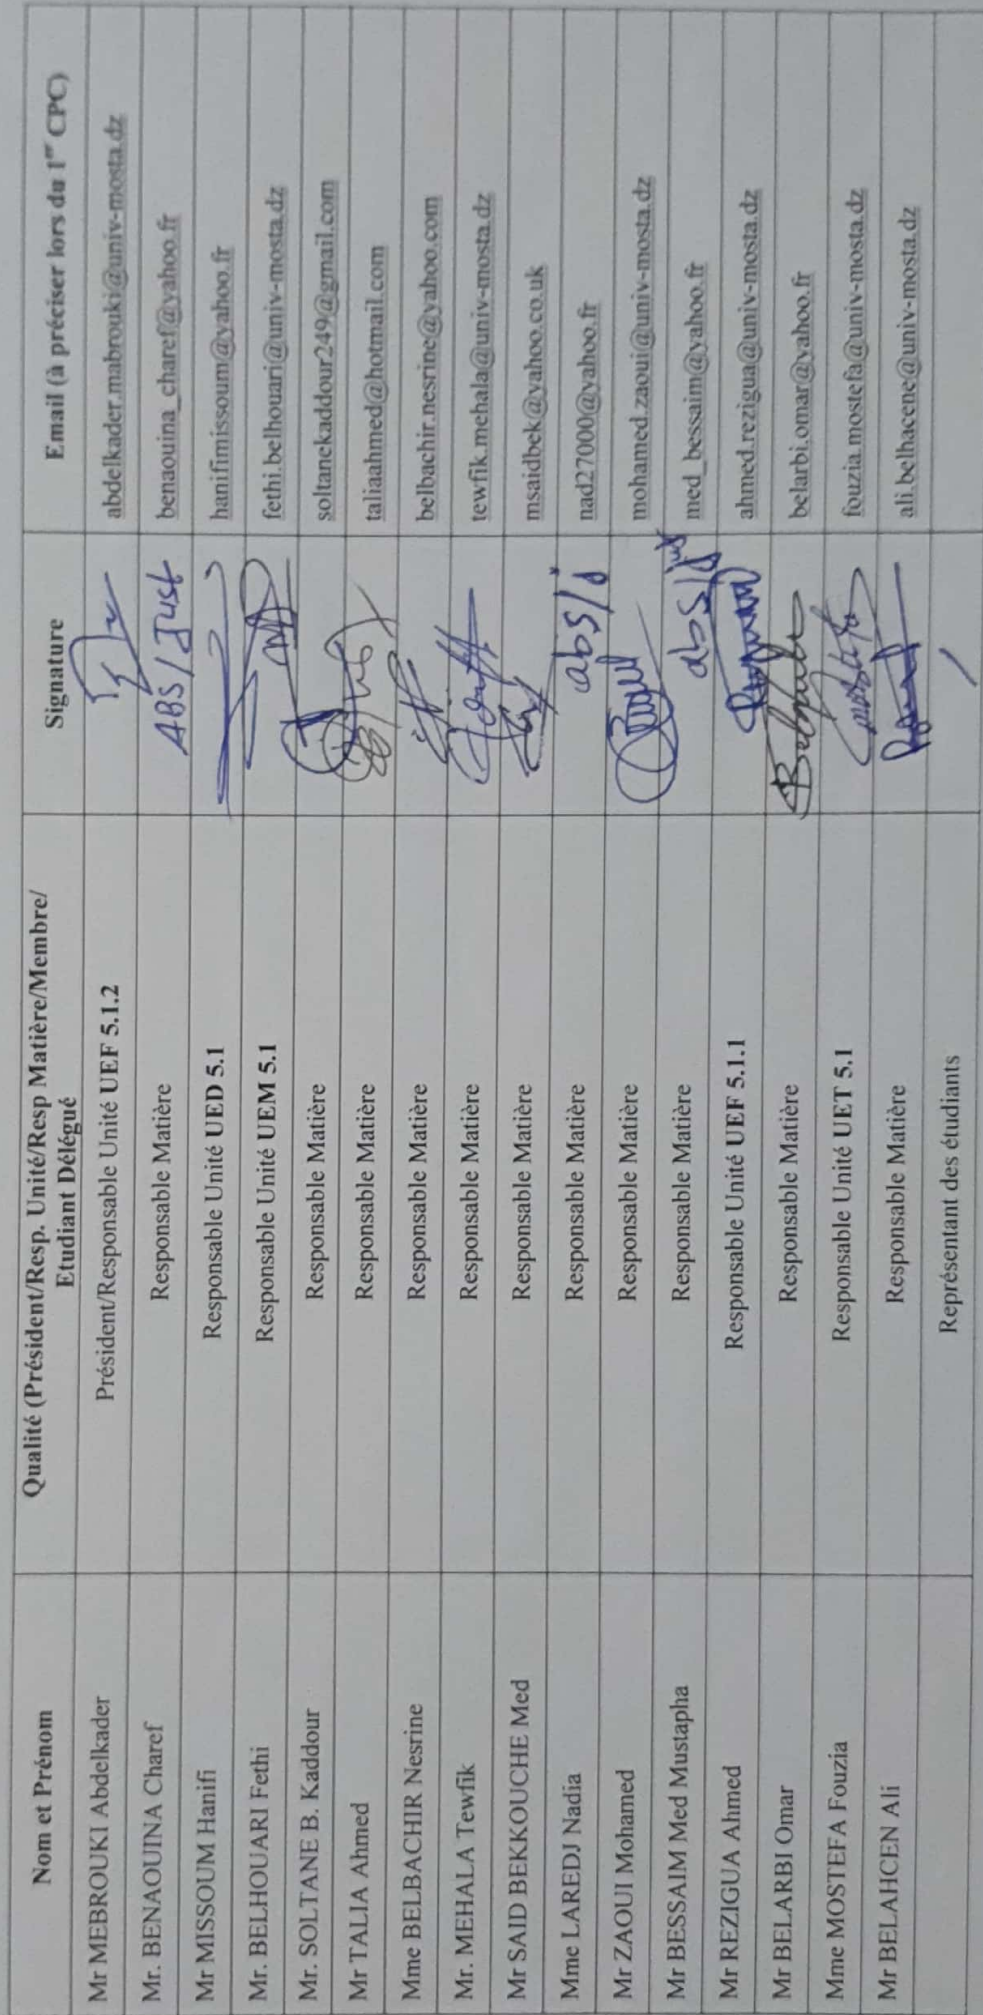 Nom et Prénom
Qualité (Président/Resp. Unité/Resp Matière/Membre/
Etudiant Délégué
Signature
Email (à préciser lors du 1er CPC)
Mr MEBROUKI Abdelkader
Président/Responsable Unité UEF 5.1.2
abdelkader.mabrouki@univ-mosta.dz
Mr. BENAOUINA Charef
Responsable Matière
ABS/Just
benaouina_charef@yahoo.fr
Mr MISSOUM Hanifi
Responsable Unité UED 5.1
hanifimissoum@yahoo.fr
Mr. BELHOUARI Fethi
Responsable Unité UEM 5.1
fethi.belhouari@univ-mosta.dz
Mr. SOLTANE B. Kaddour
Responsable Matière
soltanekaddour249@gmail.com
Mr TALIA Ahmed
Responsable Matière
taliaahmed@hotmail.com
Mme BELBACHIR Nesrine
Responsable Matière
belbachir.nesrine@yahoo.com
Mr. MEHALA Tewfik
Responsable Matière
tewfik.mehala@univ-mosta.dz
Mr SAID BEKKOUCHE Med
Responsable Matière
msaidbek@yahoo.co.uk
Mme LAREDJ Nadia
Responsable Matière
abs/j
nad27000@yahoo.fr
Mr ZAOUI Mohamed
Responsable Matière
mohamed.zaoui@univ-mosta.dz
Mr BESSAIM Med Mustapha
Responsable Matière
abs/just
med_bessaim@yahoo.fr
Mr REZIGUA Ahmed
Responsable Unité UEF 5.1.1
ahmed.rezigua@univ-mosta.dz
Mr BELARBI Omar
Responsable Matière
belarbi.omar@yahoo.fr
Mme MOSTEFA Fouzia
Responsable Unité UET 5.1
fouzia.mostefa@univ-mosta.dz
Mr BELAHCEN Ali
Responsable Matière
ali.belhacene@univ-mosta.dz
Représentant des étudiants
/